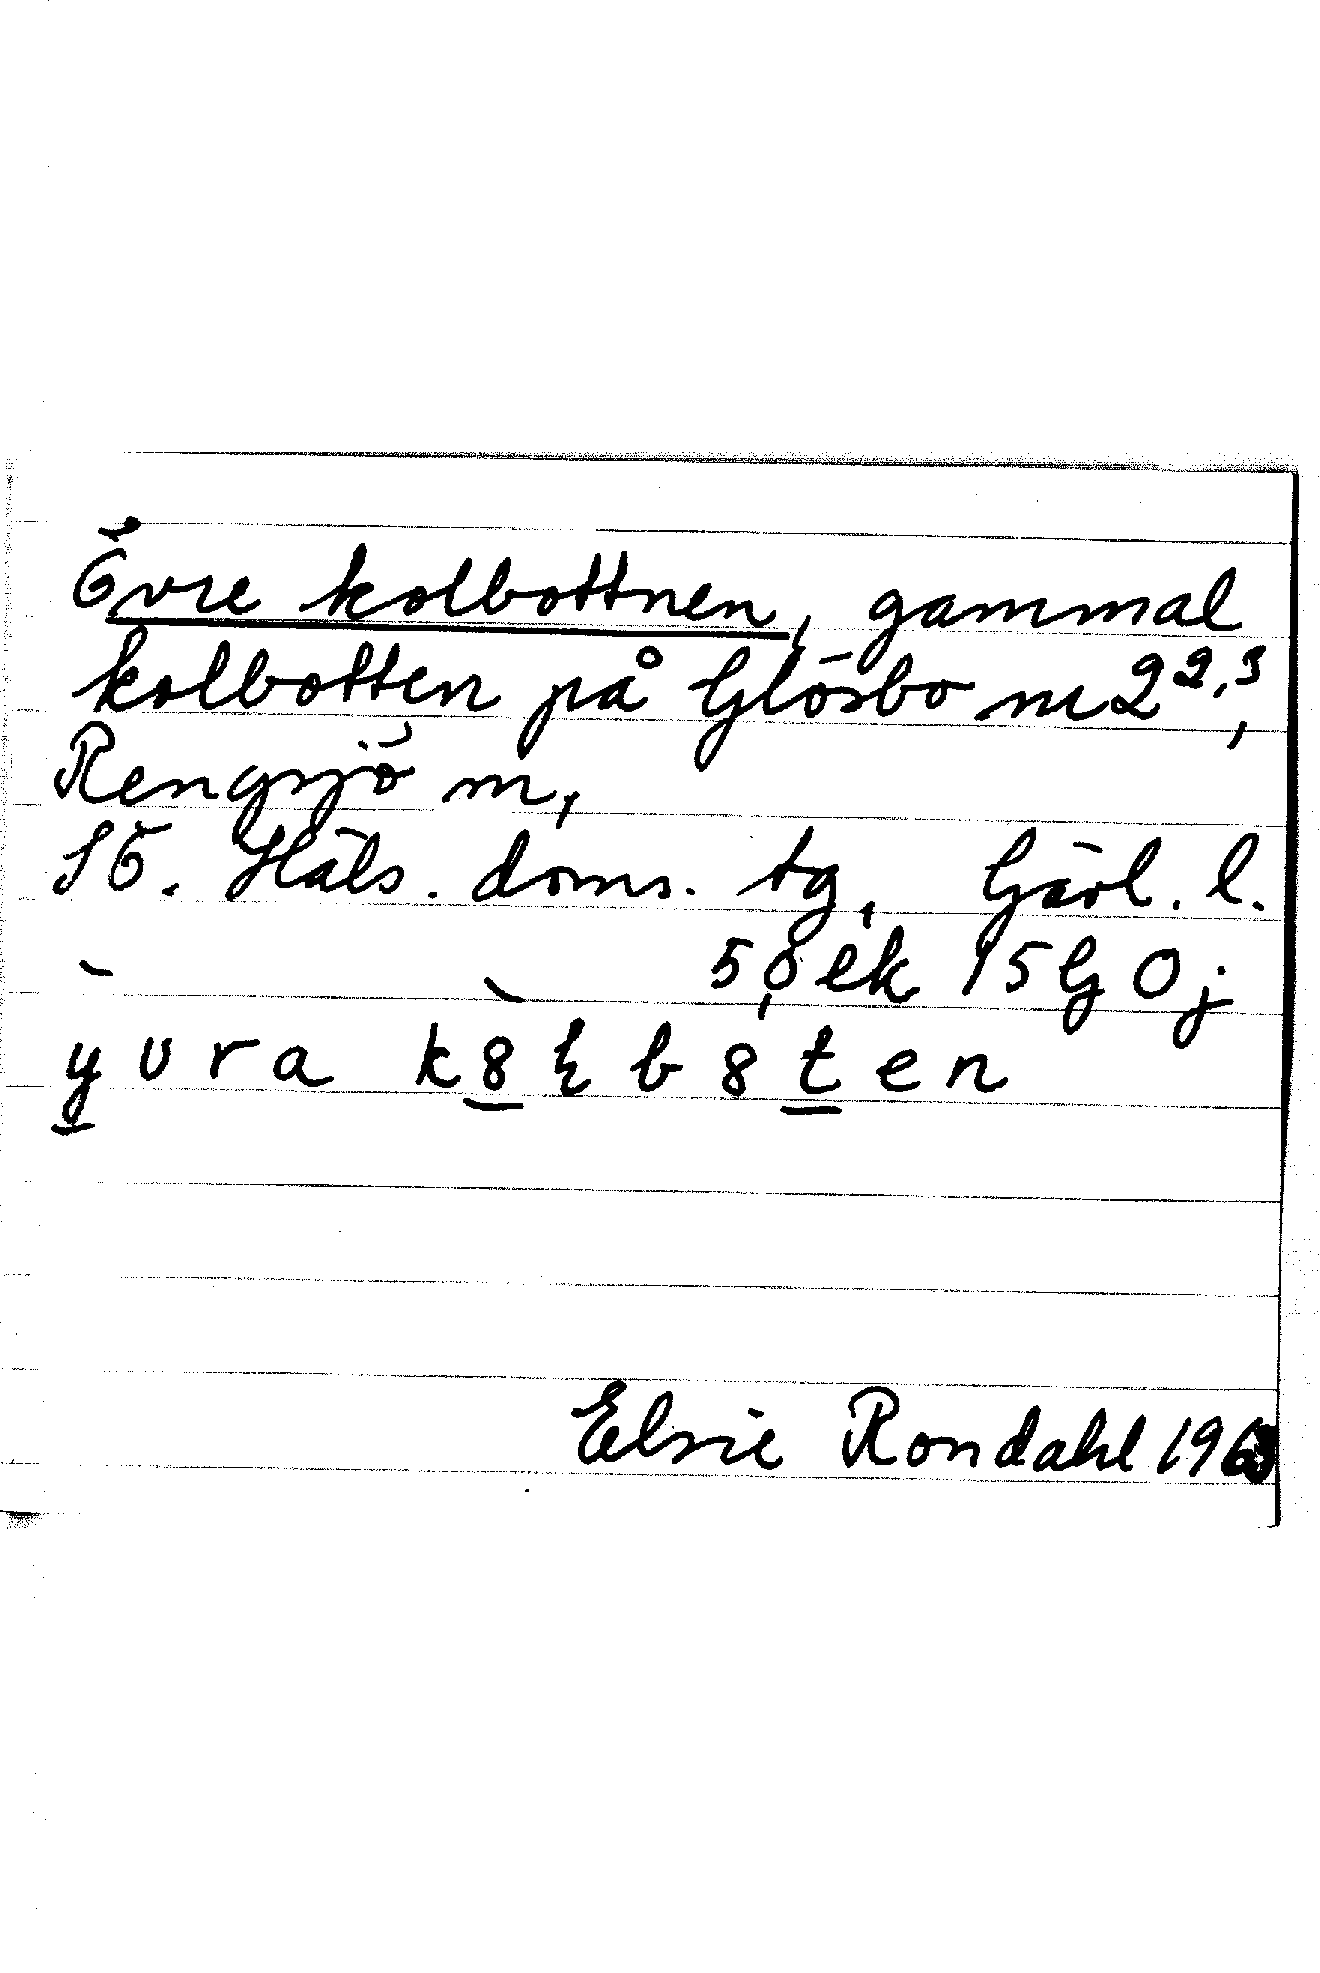 Övre kolbottnen, gammal
kolbotten på Glösbo nr 2 2,3,
Rengsjö sn,
Sö. Häls. doms. tg, Gävl. l.
5,8 ek 15G Oj
yvra k8ɽb8ten
Elsie Rondahl 196